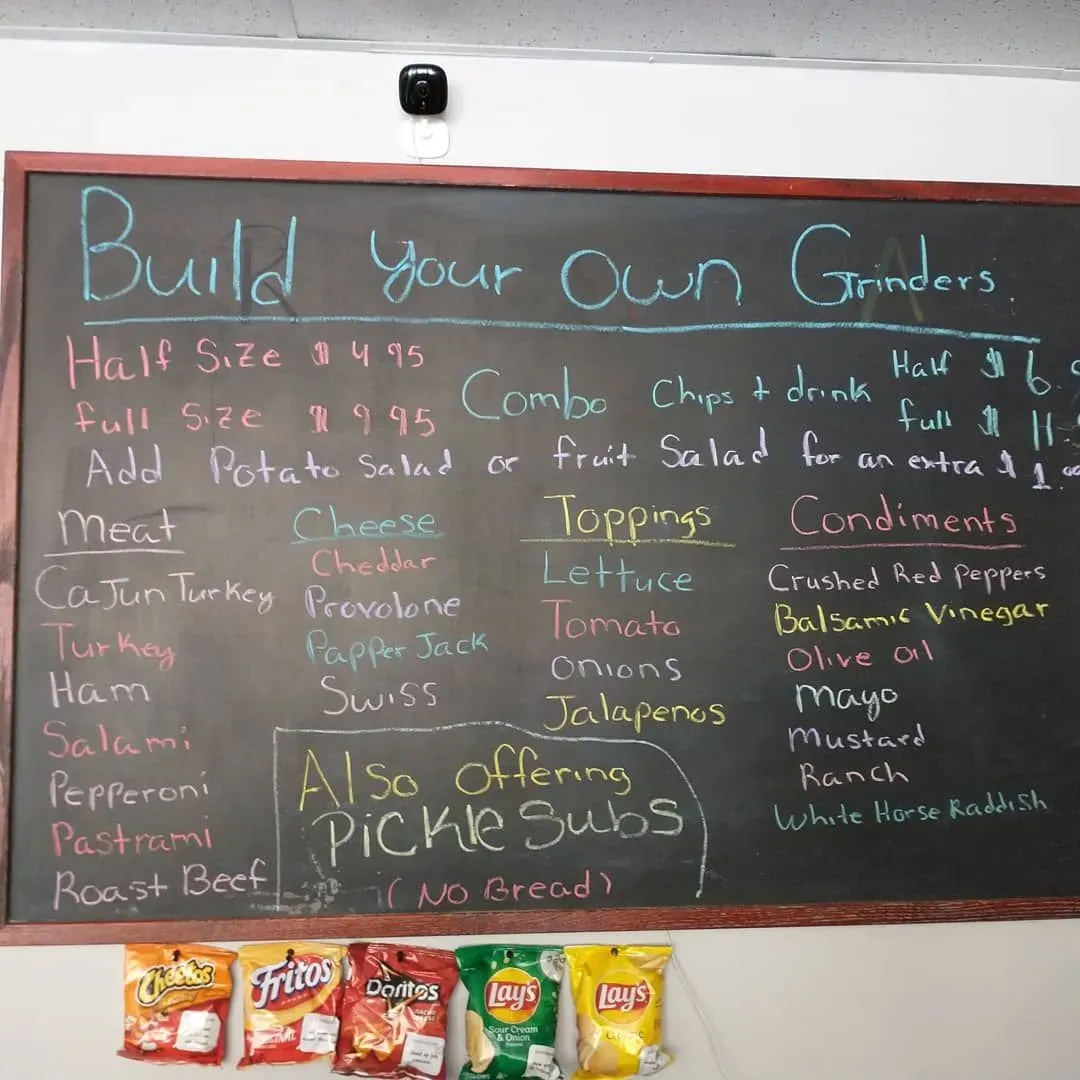 Build Your Own Grinders
Half Size $ 4 95
full Size $ 9 95
Combo Chips + drink
Half $ 6.
full $ 11.
Add Potato Salad or fruit Salad for an extra $ 1.00
Meat
Cajun Turkey
Turkey
Ham
Salami
Pepperoni
Pastrami
Roast Beef
Cheese
Cheddar
Provolone
Papper Jack
Swiss
Toppings
Lettuce
Tomato
Onions
Jalapenos
Condiments
Crushed Red Peppers
Balsamic Vinegar
Olive oil
Mayo
Mustard
Ranch
White Horse Raddish
Also Offering
Pickle Subs
(No Bread)
Cheetos
Fritos
Doritos
Lay's
Sour Cream
& Onion
Lay's